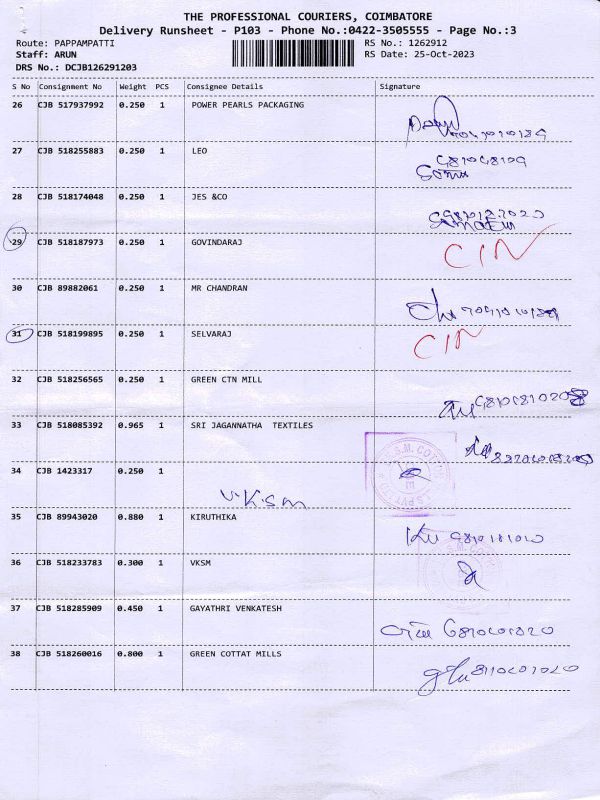 THE PROFESSIONAL COURIERS, COIMBATORE
Delivery Runsheet - P103 - Phone No.:0422-3505555 - Page No.:3
Route: PAPPAMPATTI RS No.: 1262912
Staff: ARUN RS Date: 25-Oct-2023
DRS No.: DCJB126291203
S No Consignment No Weight PCS Consignee Details Signature
26 CJB 517937992 0.250 1 POWER PEARLS PACKAGING
27 CJB 518255883 0.250 1 LEO
28 CJB 518174048 0.250 1 JES &CO
29 CJB 518187973 0.250 1 GOVINDARAJ CIN
30 CJB 89882061 0.250 1 MR CHANDRAN
31 CJB 518199895 0.250 1 SELVARAJ CIN
32 CJB 518256565 0.250 1 GREEN CTN MILL
33 CJB 518085392 0.965 1 SRI JAGANNATHA TEXTILES
34 CJB 1423317 0.250 1
V.K.S.M
35 CJB 89943020 0.880 1 KIRUTHIKA
36 CJB 518233783 0.300 1 VKSM
37 CJB 518285909 0.450 1 GAYATHRI VENKATESH
38 CJB 518260016 0.800 1 GREEN COTTAT MILLS